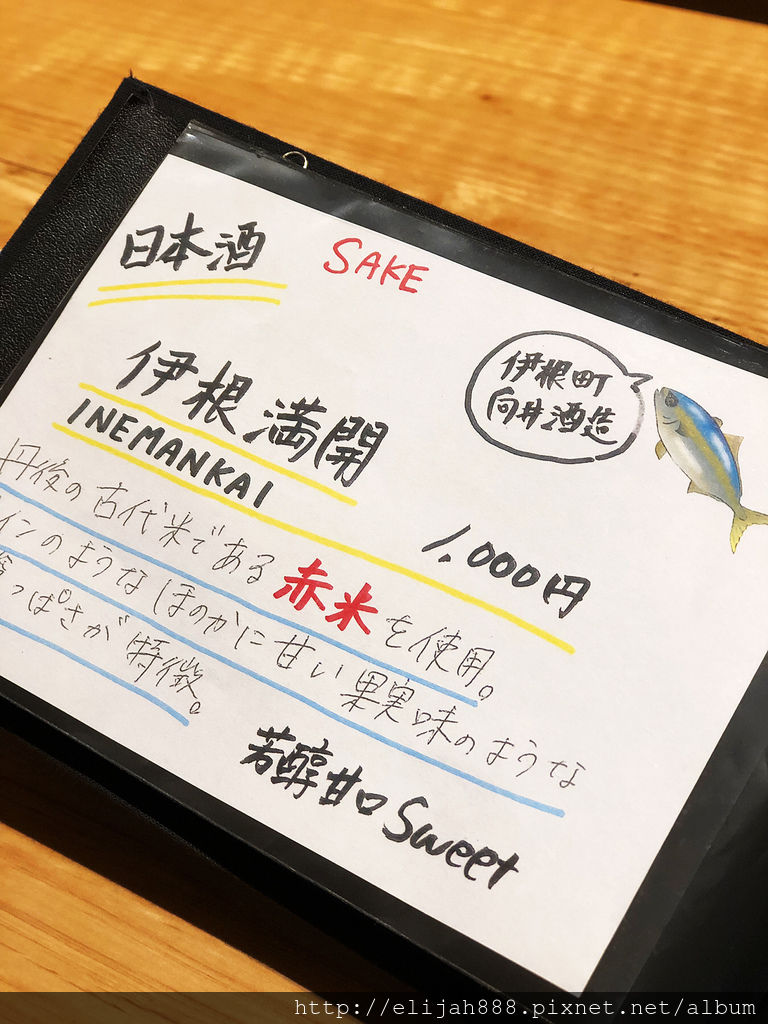 日本酒 SAKE
伊根町
向井酒造
伊根満開
INEMANKAI
1,000円
丹後の古代米である赤米を使用。
インのようなほのかに甘い果実味のような
っぱさが特徴。
芳醇甘口 Sweet
http://elijah888.pixnet.net/album